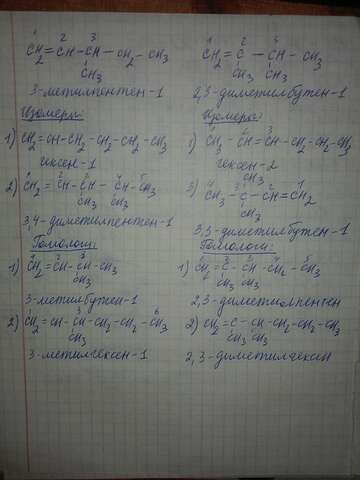 1 2 3
CH2=CH-CH-CH2-CH3
CH3
3-метилпентен-1
Изомеры:
1) CH2=CH-CH2-CH2-CH2-CH3
гексен-1
2) CH2=CH-CH-CH-CH3
CH3 CH3
3,4-диметилпентен-1
Гомологи:
1) CH2=CH-CH-CH3
CH3
3-метилбутен-1
2) CH2=CH-CH-CH2-CH2-CH3
CH3
3-метилгексен-1
1 2 3
CH2=C-CH-CH3
CH3 CH3
2,3-диметилбутен-1
Изомеры:
1) CH3-CH=CH-CH2-CH2-CH3
гексен-2
CH3
3) CH3-C-CH=CH2
CH3
3,3-диметилбутен-1
Гомологи:
1) CH2=C-CH-CH2-CH3
CH3 CH3
2,3-диметилпентен
2) CH2=C-CH-CH2-CH2-CH3
CH3 CH3
2,3-диметилгексен